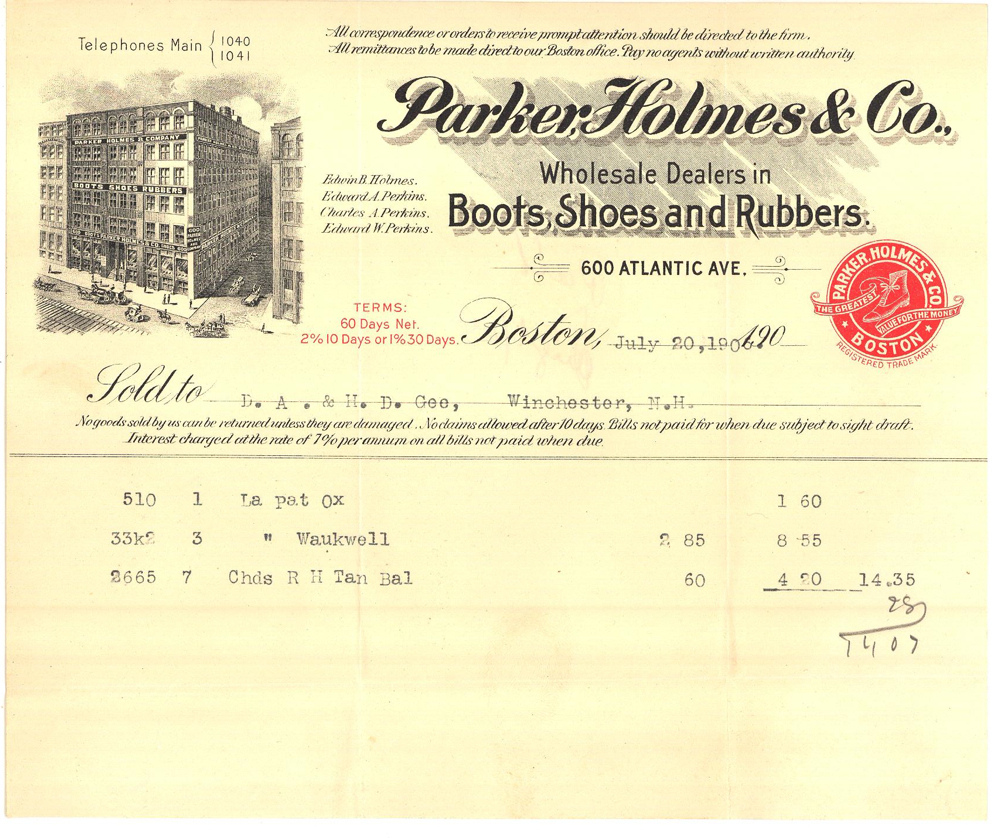 Telephones Main { 1040
1041
All correspondence or orders to receive prompt attention should be directed to the firm.
All remittances to be made direct to our Boston office. Pay no agents without written authority
Parker, Holmes & Co.,
PARKER HOLMES & COMPANY
BOOTS SHOES RUBBERS
Edwin B. Holmes.
Edward A. Perkins.
Charles A. Perkins.
Edward W. Perkins.
Wholesale Dealers in
Boots, Shoes and Rubbers.
600 ATLANTIC AVE.
PARKER, HOLMES & CO.
THE GREATEST VALUE FOR THE MONEY
BOSTON
REGISTERED TRADE MARK
TERMS:
60 Days Net.
2% 10 Days or 1% 30 Days.
Boston, July 20, 190 190
Sold to D. A . & H. D. Gee, Winchester, N.H.
No goods sold by us can be returned unless they are damaged. No claims allowed after 10 days. Bills not paid for when due subject to sight draft.
Interest charged at the rate of 7% per annum on all bills not paid when due.
510 1 La pat Ox 1 60
33k2 3 " Waukwell 2 85 8 55
2665 7 Chds R H Tan Bal 60 4 20 14.35
28
1407